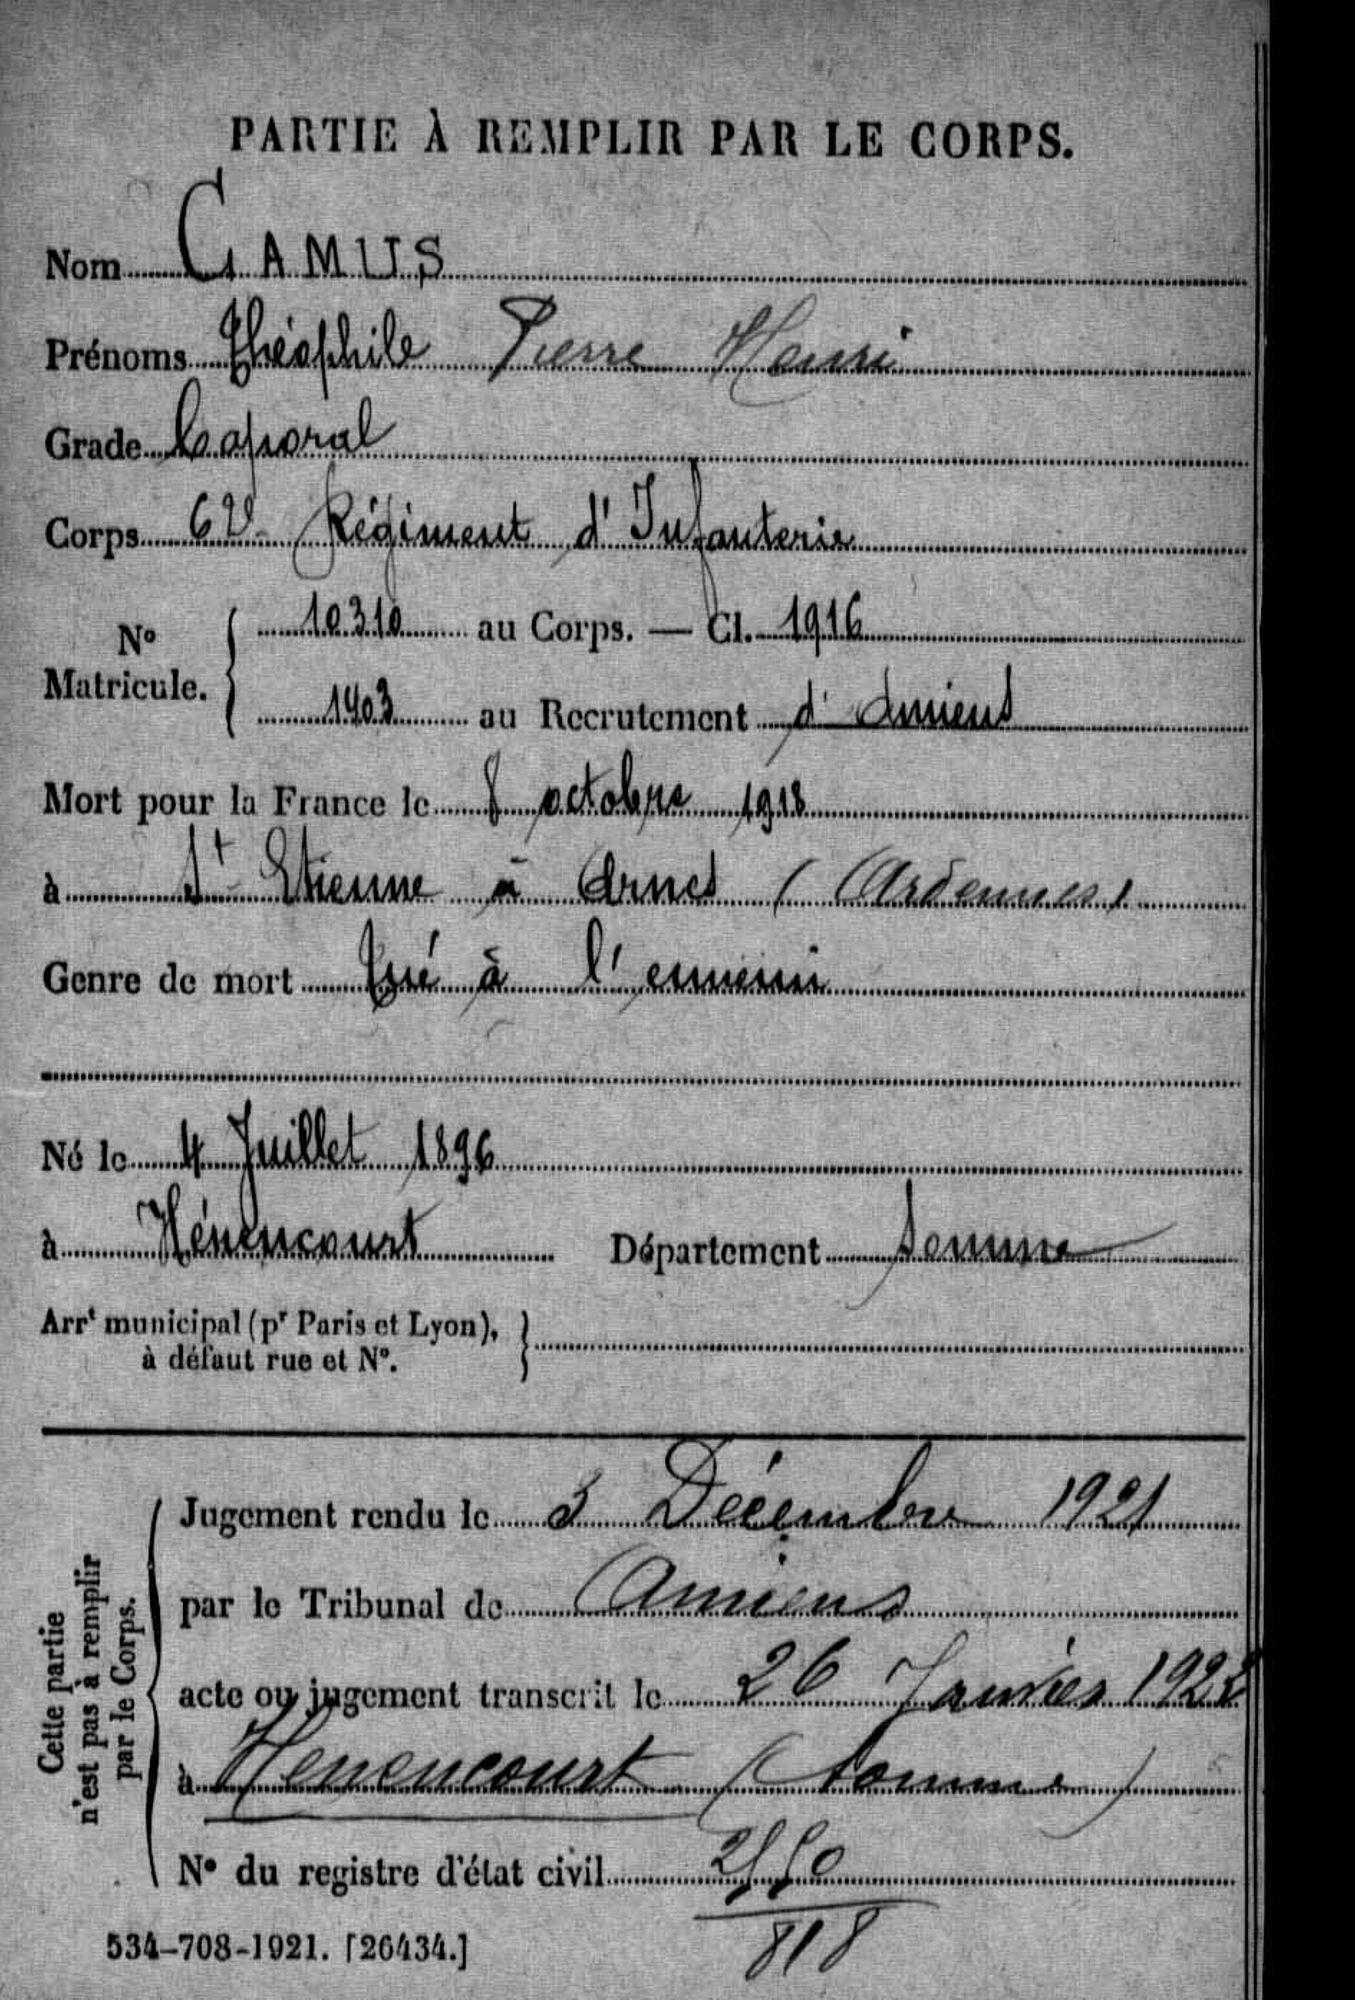 PARTIE À REMPLIR PAR LE CORPS.
Nom CAMUS
Prénoms Théophile Pierre Henri
Grade Caporal
Corps 62e Régiment d'Infanterie
No Matricule. { 10310 au Corps. — Cl. 1916
1403 au Recrutement d'Amiens
Mort pour la France le 8 octobre 1918
à St Etienne à Arnes (Ardennes)
Genre de mort Tué à l'ennemi
Né le 4 Juillet 1896
à Hénencourt Département Somme
Arrt municipal (pr Paris et Lyon), }
à défaut rue et No.
Cette partie
n'est pas à remplir
par le Corps.
Jugement rendu le 3 Décembre 1921
par le Tribunal de Amiens
acte ou jugement transcrit le 26 Janvier 1922
à Henencourt (Somme)
No du registre d'état civil
818
534-708-1921. [26434.]